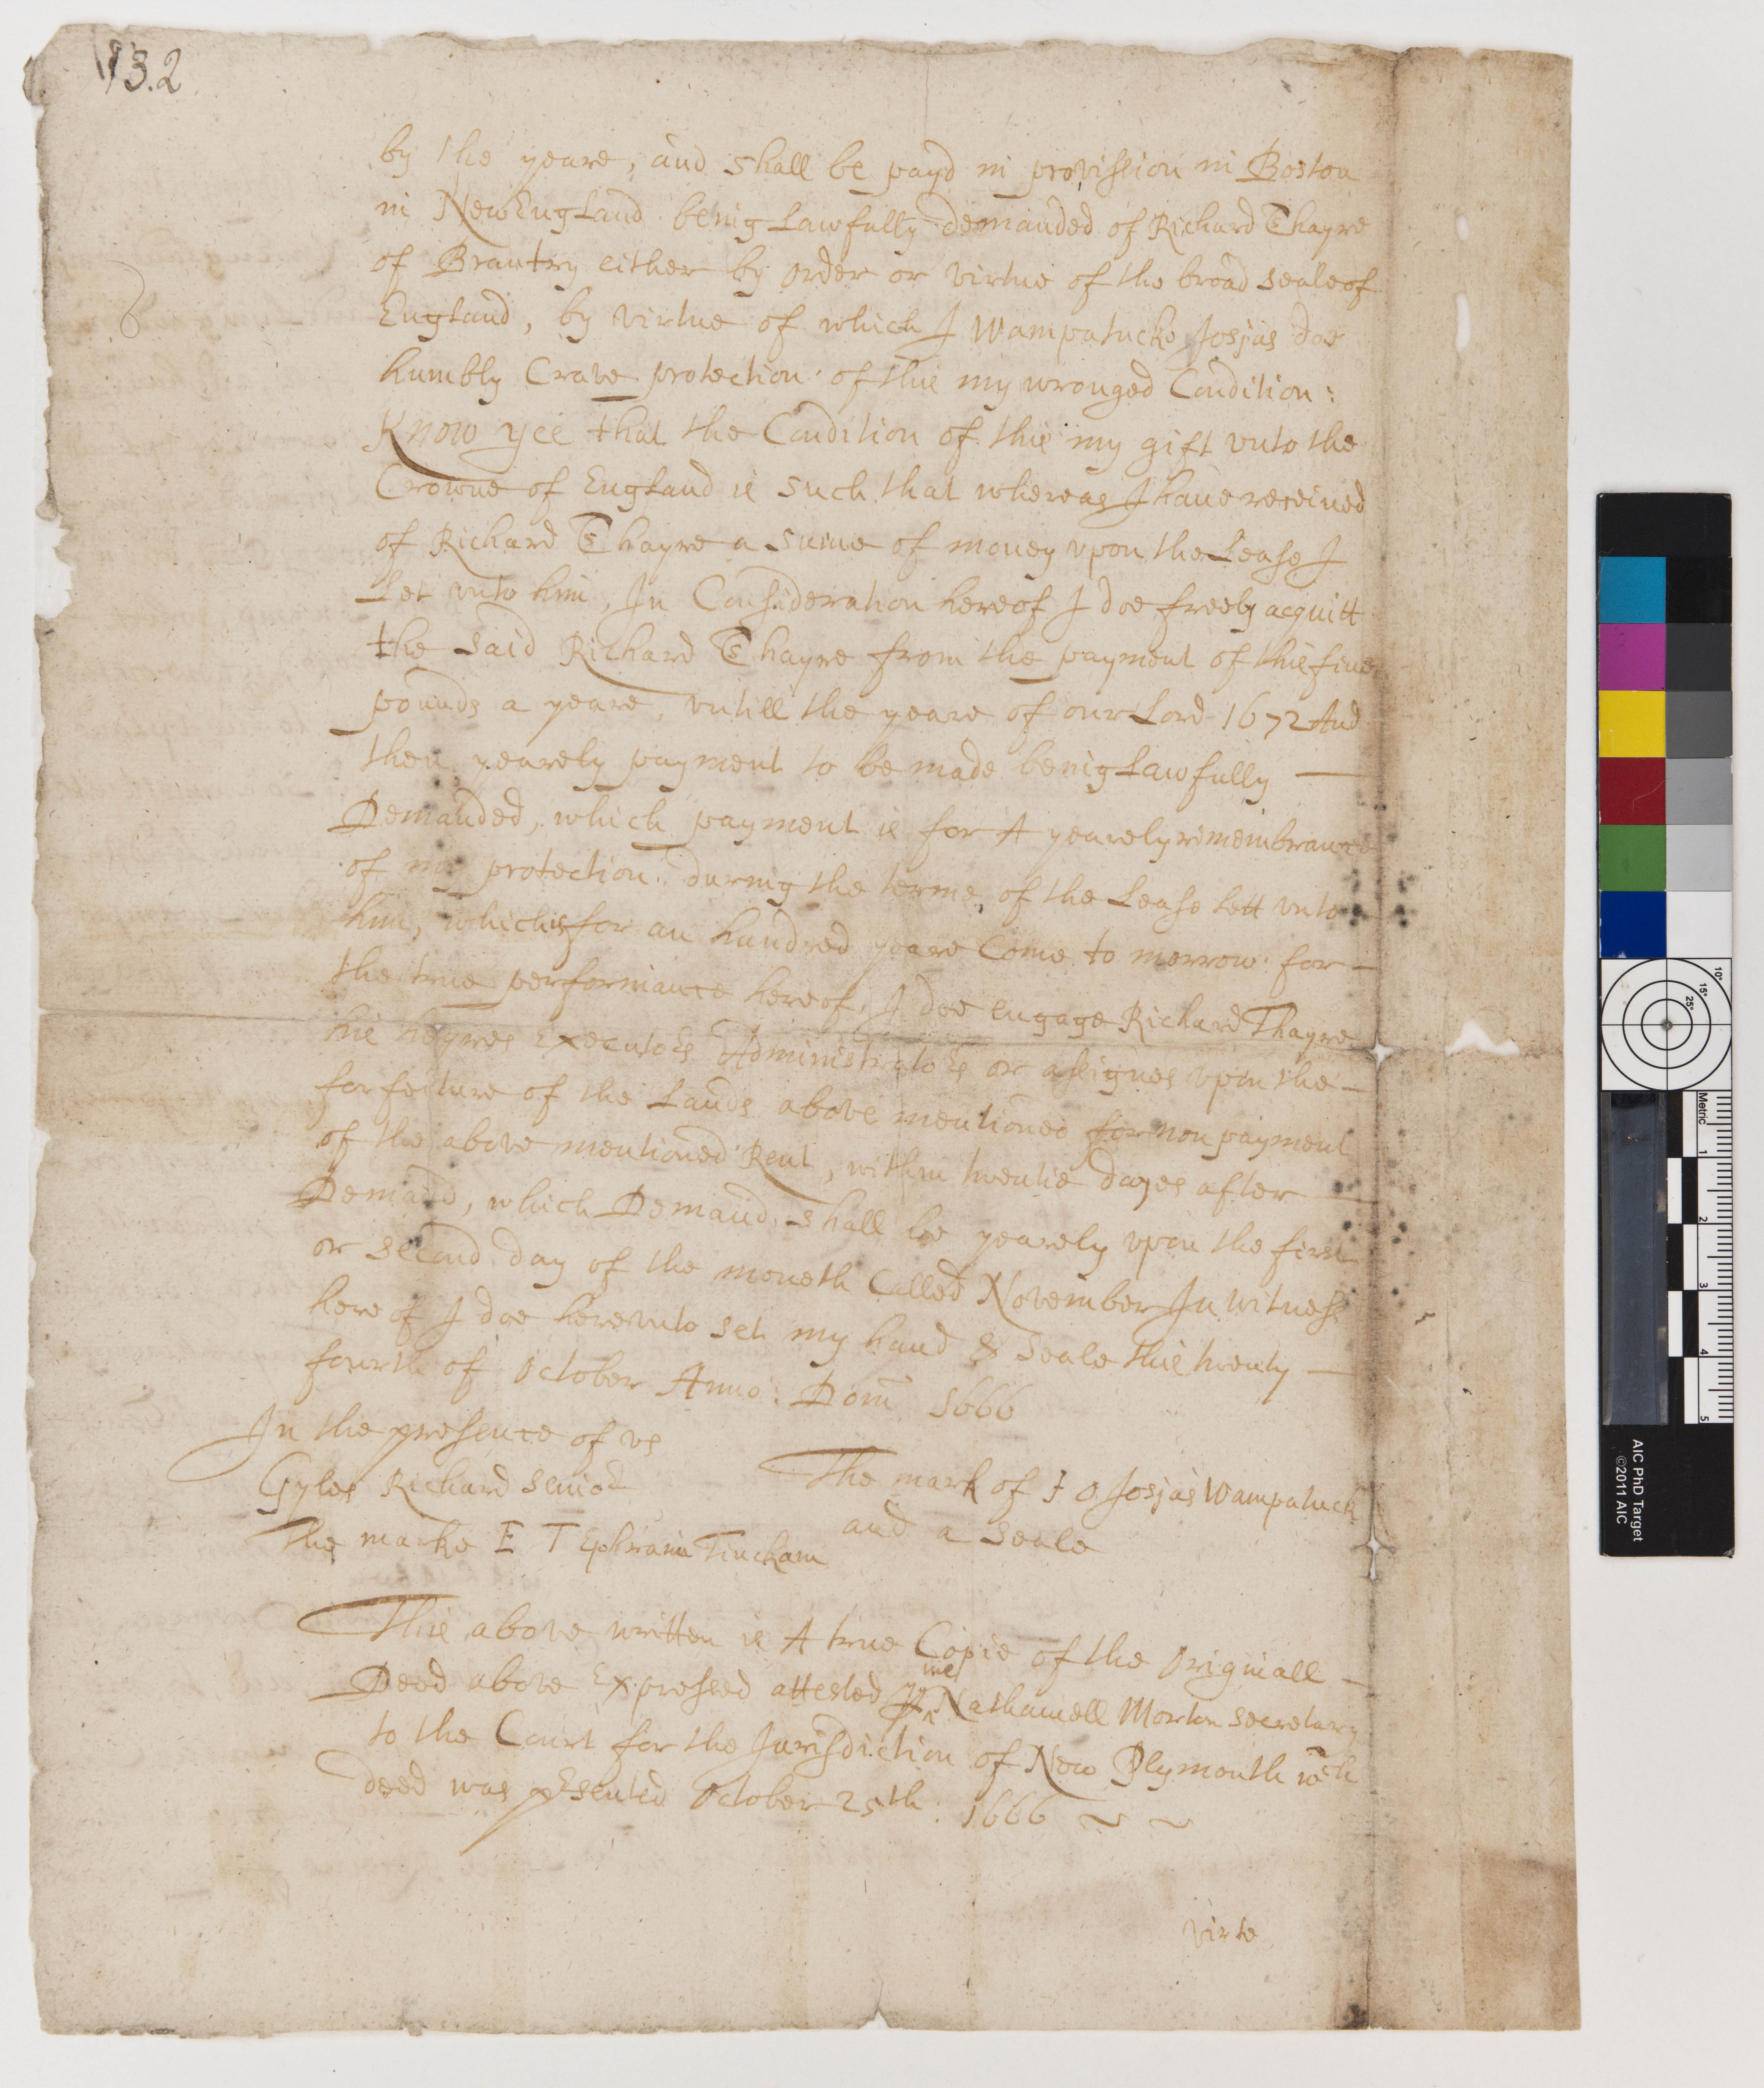 73.2
by the yeare, and shall be payd in provission in Boston
in New England being Lawfully demanded of Richard Thayre
of Brantry either by order or virtue of the broad seale of
England, by virtue of which J Wampatucke Josjas doe
humbly Crave protection of this my wronged Condition:
Know yee that the Condition of this my gift vnto the
Crowne of England is such that whereas J haue receiued
of Richard Thayre a sume of money vpon the Lease J
Let vnto him, In Consideration hereof J doe freely acquitt
the said Richard Thayre from the payment of this fiue
pounds a yeare, vntill the yeare of our Lord 1672 And
then yearely payment to be made being Lawfully —
Demanded, which payment is for A yearely remembrance
of my protection. during the terme of the Lease lett vnto
him, which is for an hundred yeare Come to morrow for —
the true performance hereof, J doe engage Richard Thayre
his heyres Executors Administrators or assignes vpon the —
forfeiture of the Lands above mentioned for non payment
of the above mentioned Rent, within twentie dayes after —
Demand, which Demand shall be yearely vpon the first
or second day of the moneth Called November In witness
here of J doe herevnto set my hand & Seale this twenty —
fourth of October Anno: Dom 1666
In the presence of vs
Gyles Richard senior
The mark of J O Josjas Wampatuck
and a Seale
The marke E T Ephraim Tinckam
This above written is A true Copie of the Originall —
Deed above Expressed attested p me Nathaniell Morton Secretary
to the Court for the Jurisdiction of New Plymouth wch
deed was psented October 25th: 1666 ~ ~
virte
AIC PhD Target
©2011 AIC
Metric
1
2
3
4
5
10°
15°
25°